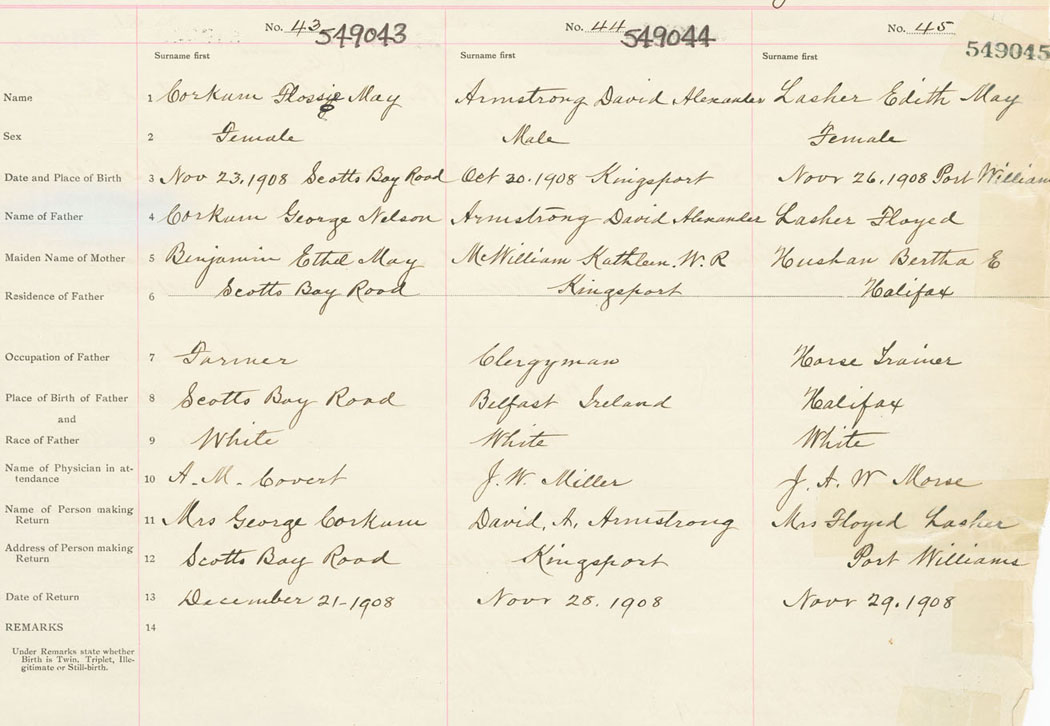 No. 43 549043 No. 44 549044 No. 45 549045
Surname first Surname first Surname first
Name 1 Corkum Flossie May Armstrong David Alexander Lasher Edith May
Sex 2 Female Male Female
Date and Place of Birth 3 Nov 23, 1908 Scotts Bay Road Oct 30. 1908 Kingsport Novr 26. 1908 Port William
Name of Father 4 Corkum George Nelson Armstrong David Alexander Lasher Floyed
Maiden Name of Mother 5 Benjamin Ethel May McWilliam Kathleen. W. R Hushan Bertha E
Residence of Father 6 Scotts Bay Road Kingsport Halifax
Occupation of Father 7 Farmer Clergyman Horse Trainer
Place of Birth of Father 8 Scotts Bay Road Belfast Ireland Halifax
and
Race of Father 9 White White White
Name of Physician in at-
tendance 10 A. M. Covert J. W. Miller J. A. W Morse
Name of Person making
Return 11 Mrs George Corkum David. A. Armstrong Mrs Floyed Lasher
Address of Person making
Return 12 Scotts Bay Road Kingsport Port Williams
Date of Return 13 December 21-1908 Novr 28. 1908 Novr 29. 1908
REMARKS 14
Under Remarks state whether
Birth is Twin, Triplet, Ille-
gitimate or Still-birth.